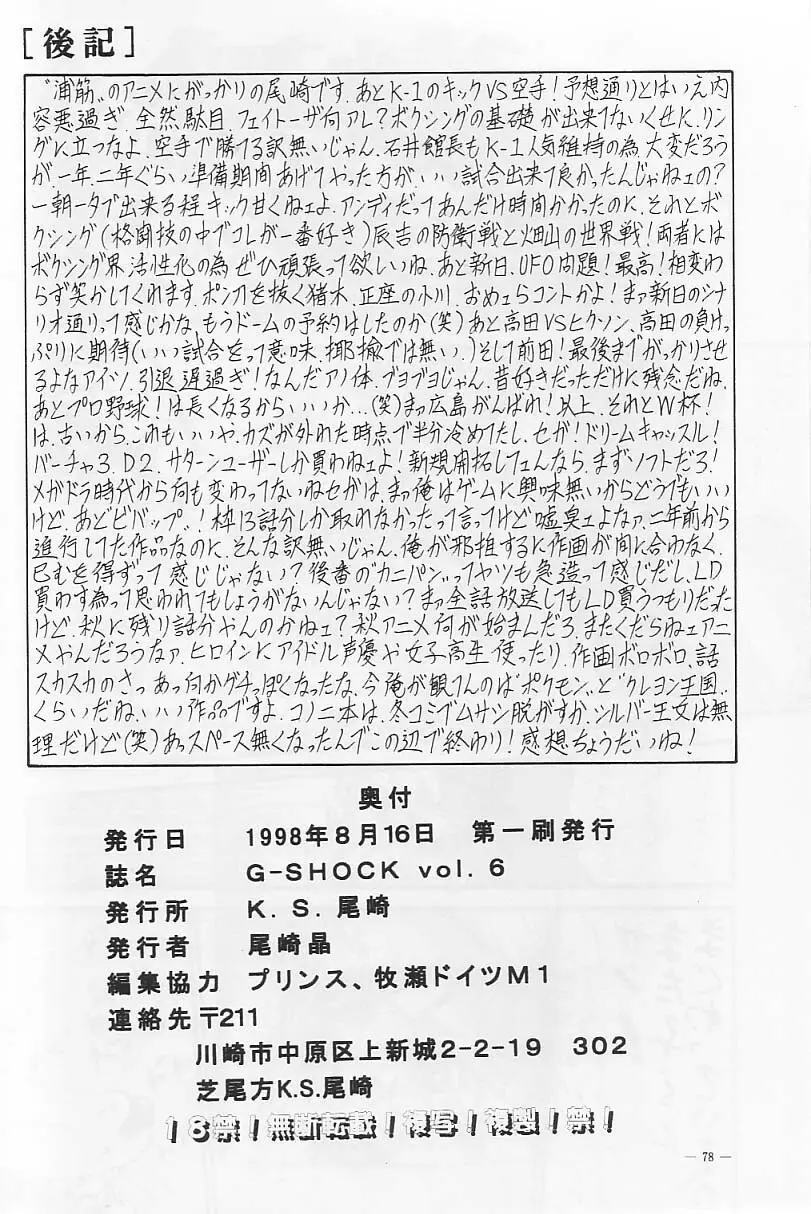 [後記]
"浦筋"のアニメにがっかりの尾崎です.あとK-1のキックVS空手!予想通りとはいえ内
容悪過ぎ.全然駄目.フェイトーザ何アレ?ボクシングの基礎が出来てないくせに.リン
グに立つなよ.空手で勝てる訳無いじゃん.石井館長もK-1人気維持の為.大変だろう
が.一年.二年ぐらい準備期間あげてやった方が.いい試合出来て良かったんじゃねェの?
一朝一夕で出来る程キック甘くねェよ.アンディだってあんだけ時間かかったのに.それとボ
クシング(格闘技の中でコレが一番好き)辰吉の防衛戦と畑山の世界戦!両者には
ボクシング界活性化の為ぜひ頑張って欲しいね.あと新日.UFO問題!最高!相変わ
らず笑かしてくれます.ポン刀を抜く猪木.正座の小川.おめェらコントかよ!まァ新日のシナ
リオ通りって感じかな.もうドームの予約はしたのか(笑)あと高田VSヒクソン.高田の負けっ
ぷりに期待(いい試合をって意味.揶揄では無い.)そして前田!最後までがっかりさせ
るよなアイツ.引退遅過ぎ!なんだアノ体.ブヨブヨじゃん.昔好きだっただけに残念だね.
あとプロ野球!は長くなるからいいか...(笑)まァ広島がんばれ!以上.それとW杯!
は.古いから.これもいいや.カズが外れた時点で半分冷めてたし.セガ!ドリームキャッスル!
バーチャ3.D2.サターンユーザーしか買わねェよ!新規開拓してェんなら.まずソフトだろ!
メガドラ時代から何も変わってないねセガは.まァ俺はゲームに興味無いからどうでもいい
けど.あとビバップ!枠13話分しか取れなかったって言ってけど嘘臭ェよなァ.二年前から
進行してた作品なのに.そんな訳無いじゃん.俺が邪推するに作画が間に合わなく.
已むを得ずって感じじゃない?後番の"カニパン"ってヤツも急造って感じだし.LD
買わす為って思われてもしょうがないんじゃない?まァ全話放送してもLD買うつもりだった
けど.秋に残り話分やんのかねェ?秋アニメ何が始まんだろ.またくだらねェアニ
メやんだろうなァ.ヒロインにアイドル声優や女子高生使ったり.作画ボロボロ.話
スカスカのさっ.あっ何かグチっぽくなったな.今俺が観てんのは"ポケモン"と"クレヨン王国"
くらいだね.いい作品ですよ.コノ二本は.冬コミでムサシ脱がすか.シルバー王女は無
理だけど(笑)あっスペース無くなったんでこの辺で終わり!感想ちょうだいね!
奥付
発行日 1998年8月16日 第一刷発行
誌名 G-SHOCK vol.6
発行所 K.S.尾崎
発行者 尾崎晶
編集協力 プリンス、牧瀬ドイツM1
連絡先〒211
川崎市中原区上新城2-2-19 302
芝尾方K.S.尾崎
18禁!無断転載!複写!複製!禁!
— 78 —